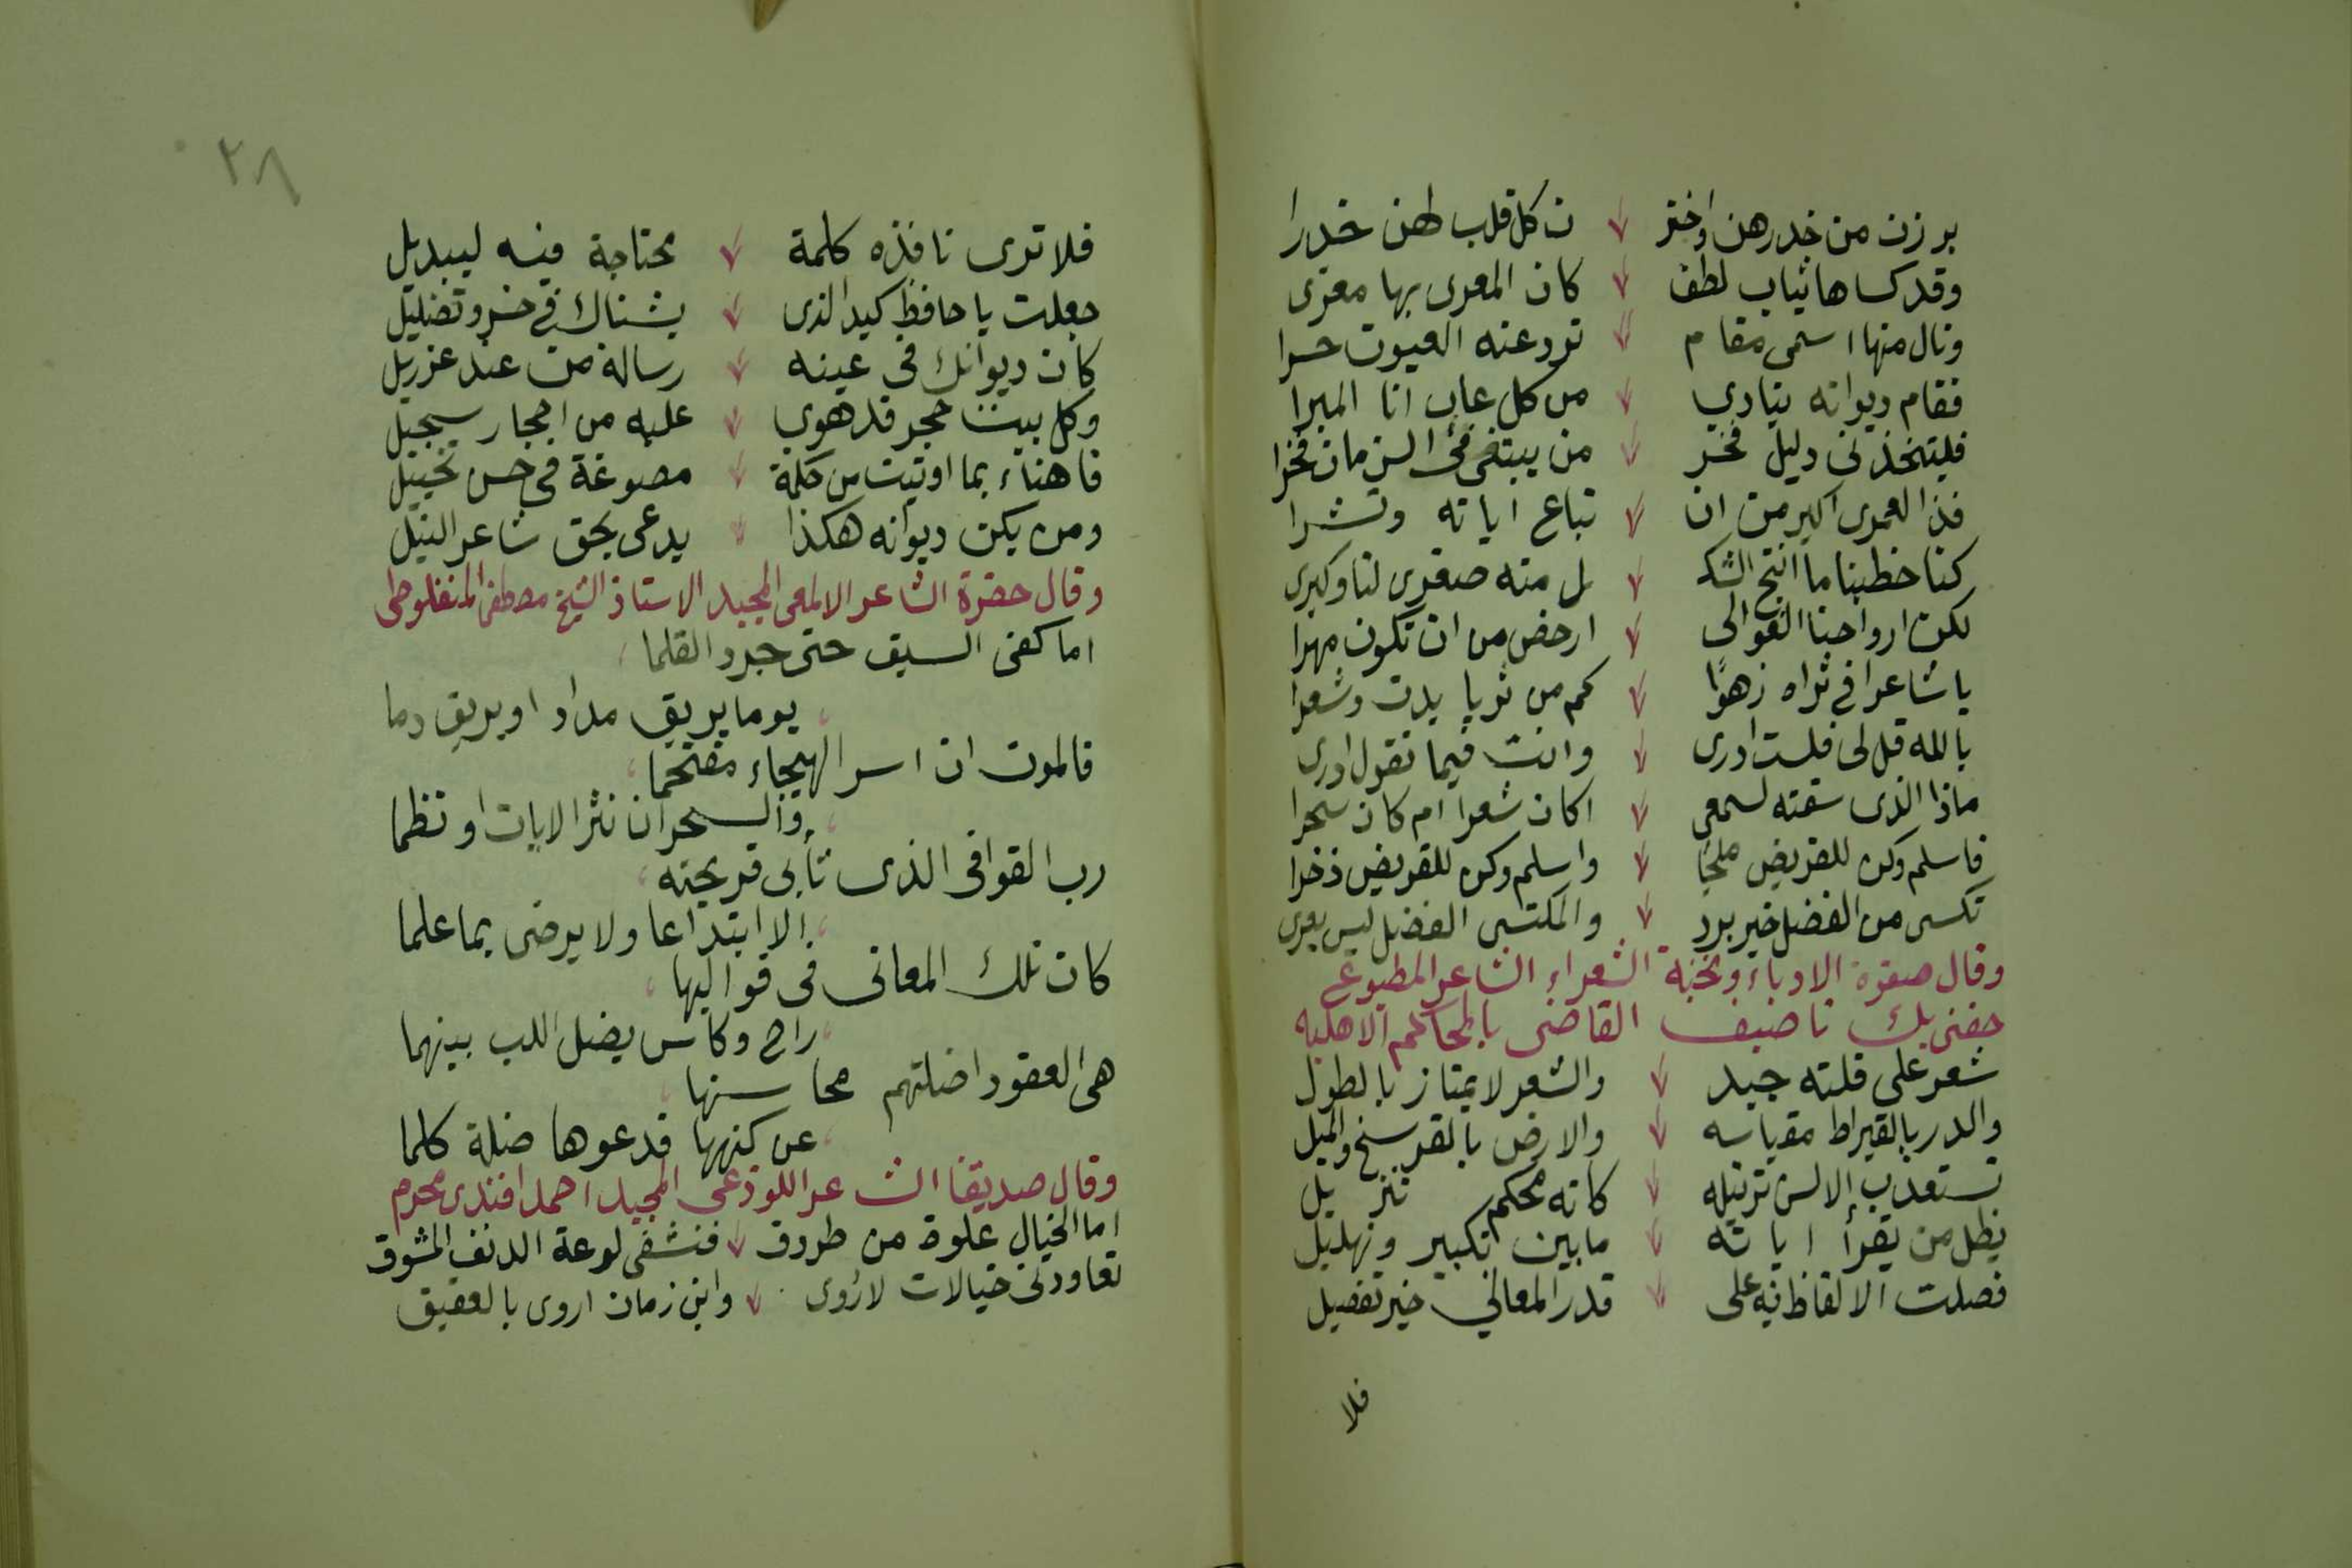 برزن من خدرهن واختر ن كل قلب لهن خدرا
وقد كساها ثياب لطف كان المعرى بها معرى
ونال منها اسمى مقام ترد عنه العيون حسرا
فقام ديوانه ينادي من كل عاب انا المبرا
فليتخذنى دليل فخر من يبتغى فى الزمان فخرا
فذا لعمرى اكبر من ان تباع اياته وتشرا
كنا خطبنا ما انتج الشك ل منه صغرى لنا وكبرى
لكن ارواحنا الغوالى ارخص من ان تكون مهرا
يا شاعرا فى ثراه زهوًا كم من ثريا بدت وشعرا
بالله قل لى فلست ادرى وانت فيما تقول ادرى
ماذا الذى سقته لسمعى اكان شعرا ام كان سحرا
فاسلم وكن للقريض ملجًا واسلم وكن للقريض ذخرا
تكسى من الفضل خير برد والمكتسى الفضل ليس يعرى
وقال صفوة الادباء ونخبة الشعراء الشاعر المطبوع
حفنى بك ناصيف القاضى بالمحاكم الاهلية
شعر على قلته جيد والشعر لا يمتاز بالطول
والدر بالقيراط مقياسه والارض بالفرسخ والميل
تستعذب الالسن ترتيله كانه محكم تنزيل
يظل من يقرأ اياته ما بين تكبير وتهليل
فصلت الالفاظ فيه على قدر المعاني خير تفصيل
فلا
٢٨
فلا ترى نافذه كلمة محتاجة فيه لتبديل
جعلت يا حافظ كيد الذى يشناك في خسر وتضليل
كان ديوانك فى عينه رسالة من عند عزريل
وكل بيت حجر قد هوي عليه من احجار سجيل
فاهناء بما اوتيت من حكمة مصوغة فى حسن تخييل
ومن يكن ديوانه هكذا يدعى بحق شاعر النيل
وقال حضرة الشاعر الالمعى المجيد الاستاذ الشيخ مصطفى المنفلوطى
اما كفى السيف حتى جرد القلما
يوما يريق مداد او يريق دما
فالموت ان اسر الهيجاء مقتحما
والسحر ان نثر الايات او نظما
رب القوافى الذى تأبى قريحته
الا ابتداعا ولا يرضى بما علما
كان تلك المعانى فى قواليها
راح وكاس يضل اللب بينهما
هى العقود اضلتهم محاسنها
عن كنهها فدعوها ضلة كلما
وقال صديقنا الشاعر اللوذعى المجيد احمد افندى محرم
اما الخيال علوة من طروق فنشفى لوعة الدنف المشوق
تعاودنى خيالات لاروى وابن زمان اروى بالعقيق